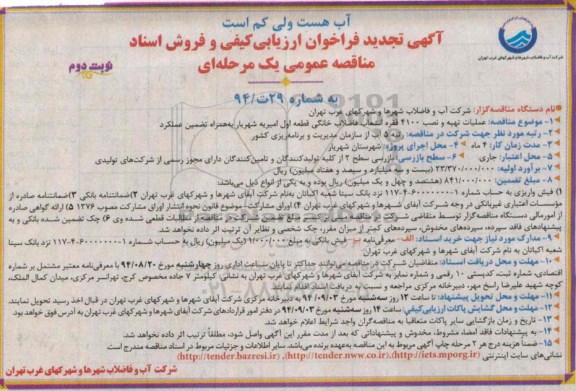 آب هست ولی کم است
آگهی تجدید فراخوان ارزیابی‌کیفی و فروش اسناد
مناقصه عمومی یک مرحله‌ای
نوبت دوم
شرکت آب و فاضلاب شهرها و شهرکهای غرب تهران
به شماره ۲۹ت/۹۴
نام دستگاه مناقصه‌گزار: شرکت آب و فاضلاب شهرها و شهرکهای غرب تهران
۱- موضوع مناقصه: عملیات تهیه و نصب ۴۱۰۰ فقره انشعاب فاضلاب خانگی قطعه اول امیریه شهریار به‌همراه تضمین عملکرد
۲- رتبه مورد نظر جهت شرکت در مناقصه: رتبه ۵ آب از سازمان مدیریت و برنامه‌ریزی کشور
۳- مدت زمان کار: ۴ ماه ۴- محل اجرای پروژه: شهرستان شهریار
۵- محل اعتبار: جاری ۶- سطح بازرسی: بازرسی سطح ۲ از کلیه تولیدکنندگان و تامین‌کنندگان دارای مجوز رسمی از شرکت‌های تولیدی
۷- برآورد اولیه: (بیست و یک میلیارد و سیصد و هفتاد میلیون) ریال
۸- مبلغ تضمین: ۸۴۱/۰۰۰/۰۰۰ (هشتصد و چهل و یک میلیون) ریال بوده و به یکی از انواع ذیل می‌باشد:
۱) فیش واریزی به حساب شماره نزد بانک سینا شعبه اکباتان به‌نام شرکت آبفای شهرها و شهرکهای غرب تهران ۲) ضمانتنامه بانکی ۳) ضمانتنامه صادره از
مؤسسات اعتباری غیربانکی در وجه شرکت آبفای شهرها و شهرکهای غرب تهران ۴) اوراق مشارکت موضوع قانون نحوه انتشار اوراق مشارکت مصوب ۱۳۷۶ ۵) ارائه گواهی صادره
پیشنهادهای فاقد سپرده، سپرده‌های مخدوش، سپرده‌های کمتر از میزان مقرر، چک شخصی و نظایر آن ترتیب اثر داده نخواهد شد.
۹- مدارک مورد نیاز جهت خرید اسناد: الف- معرفی‌نامه ب- فیش بانکی به مبلغ ۱/۰۰۰/۰۰۰ (یک میلیون) ریال به حساب شماره نزد بانک سینا
شعبه اکباتان به نام شرکت آبفای شهرها و شهرکهای غرب تهران
۱۰- مهلت و محل دریافت اسناد: متقاضیان شرکت در مناقصه می‌توانند حداکثر تا پایان ساعت اداری روز چهارشنبه مورخ ۹۴/۰۸/۲۰ با معرفی‌نامه معتبر مشتمل بر شماره
اقتصادی، شماره ثبت، کدپستی ۱۰ رقمی و شماره نمابر به شرکت آبفای شهرها و شهرکهای غرب تهران به نشانی کیلومتر ۷ جاده مخصوص کرج، تهرانسر مرکزی، میدان کمال الملک،
کوچه شهید علیرضا پاسخ مهر، دبیرخانه مرکزی مراجعه و نسبت به دریافت اسناد اقدام نمایند.
۱۱- مهلت و محل تحویل پیشنهاد: تا ساعت ۱۲ روز سه‌شنبه مورخ ۹۴/۰۹/۰۳ به دبیرخانه مرکزی شرکت آبفای شهرها و شهرکهای غرب تهران در قبال اخذ رسید تحویل نمایند.
۱۲- مهلت و محل گشایش پاکات ارزیابی‌کیفی: ساعت ۱۴ روز سه‌شنبه مورخ ۹۴/۰۹/۰۳ در دفتر امور قراردادهای شرکت آبفای شهرها و شهرکهای غرب تهران به آدرس فوق خواهد بود.
۱۳- تاریخ و زمان بازگشایی سایر پاکات متعاقبا به مناقصه‌گران واجد شرایط اعلام خواهد شد.
۱۴- به پیشنهادات فاقد امضاء، مشروط، مخدوش و پیشنهاداتی که بعد از مدت مقرر این آگهی واصل شود، مطلقاً ترتیب اثر داده نخواهد شد.
۱۵- ضمناً هزینه درج هر ۲ مرحله چاپ آگهی مربوط به این مناقصه به‌عهده برنده می‌باشد. سایر اطلاعات و جزئیات مربوط در اسناد مناقصه مندرج است
نشانی‌های سایت اینترنتی (http://iets.mporg.ir)، (http://tender.nww.co.ir)، (http://tender.bazresi.ir)
شرکت آب و فاضلاب شهرها و شهرکهای غرب تهران